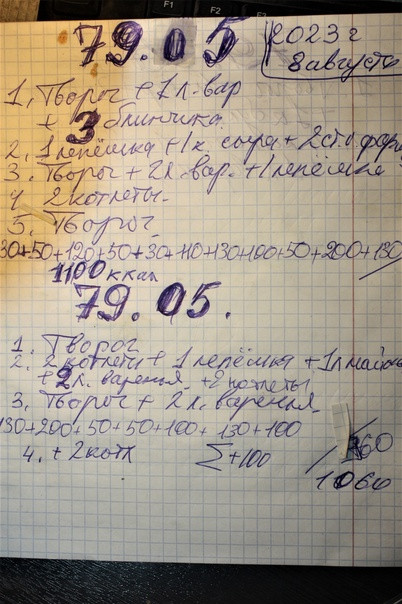 F1 F2
79.05
2023 г
8 августа
1. Творог + 1 л. вар
+ 3 блинчика
2. 1 лепёшка + 1 к. сыра + 2 ст.
3. Творог + 2 л. вар. + 1 лепёшка
4 2 котлеты.
5. Творог
30+50+120+50+30+110+130+100+50+200+130
1100 ккал
79.05.
1. Творог
2. 2 котлеты + 1 лепёшка + 1 л
+ 2 л. варенья +2 котлеты
3. Творог + 2 л. варенья
130+200+50+50+100+130+100
4. + 2 котл Σ+100
1060